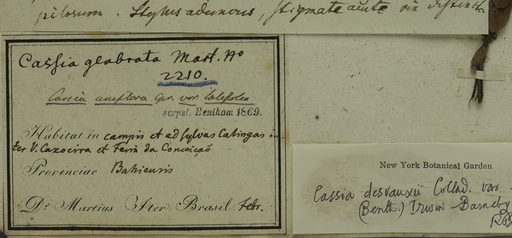 pilosum. Stylus aduncus, stigmate acuto vix distincto
Cassia glabrata Mart. No
2210.
Cassia uniflora Spr. var.
scrpst. Bentham 1869.
Habitat in campis et ad sylvas Catingas in-
ter V. Caxocira et Feira da Conceição
Provinciae Bahiensis
Dr. Martius Iter Brasil Febr.
New York Botanical Garden
Cassia desvauxii Collad. var.
(Benth.) Irwin Barneby